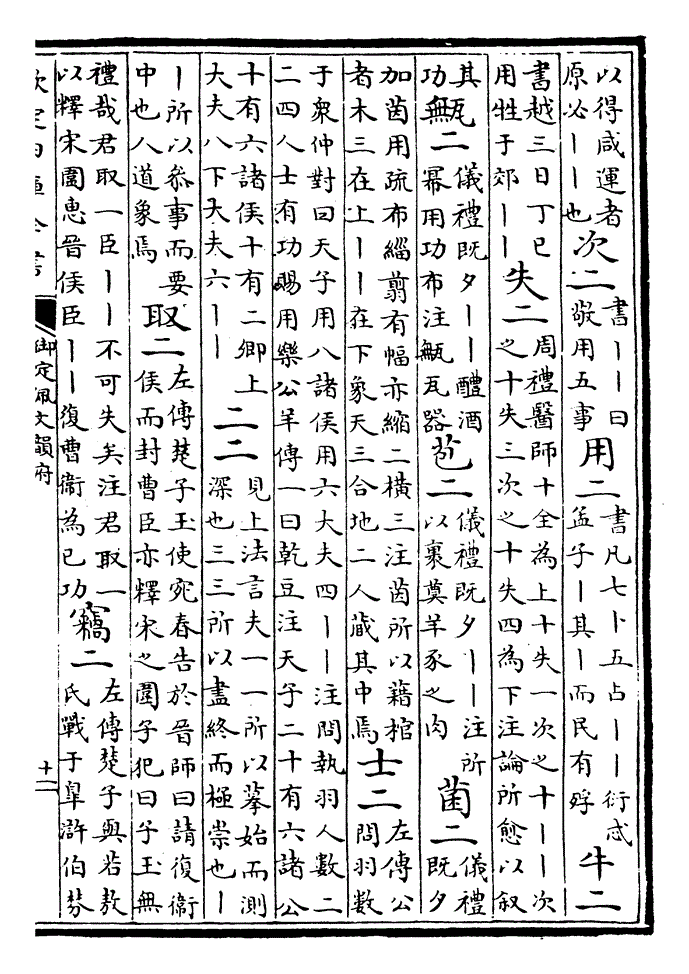 以得咸運者原必丨丨也次二書丨丨曰敬用五事用二書凡七卜五占丨丨衍忒孟子丨其丨而民有殍牛二
書越三日丁巳用牲于郊丨丨失二周禮醫師十全為上十失一次之十丨丨次之十失三次之十失四為下注論所愈以叙
其功甒二儀禮既夕丨丨醴酒冪用功布注甒瓦器苞二儀禮既夕丨丨注所以裹奠羊豕之肉茵二儀禮既夕
加茵用疏布緇翦有幅亦縮二橫三注茵所以藉棺者木三在上丨丨在下象天三合地二人藏其中焉士二左傳公問羽數
于衆仲對曰天子用八諸侯用六大夫四丨丨注問執羽人數二二四人士有功賜用樂公羊傳一曰乾豆注天子二十有六諸公
十有六諸侯十有二卿上大夫八下大夫六丨丨二二見上法言夫一一所以摹始而測深也三三所以盡終而極崇也丨
丨所以叅事而要中也人道象焉取二左傳楚子玉使宛春告於晉師曰請復衛侯而封曹臣亦釋宋之圍子犯曰子玉無
禮哉君取一臣丨丨不可失矣注君取一以釋宋圍惠晉侯臣丨丨復曹衛為己功竊二左傳楚子與若敖氏戰于臯滸伯棼
欽定四庫全書
御定佩文韻府
十二